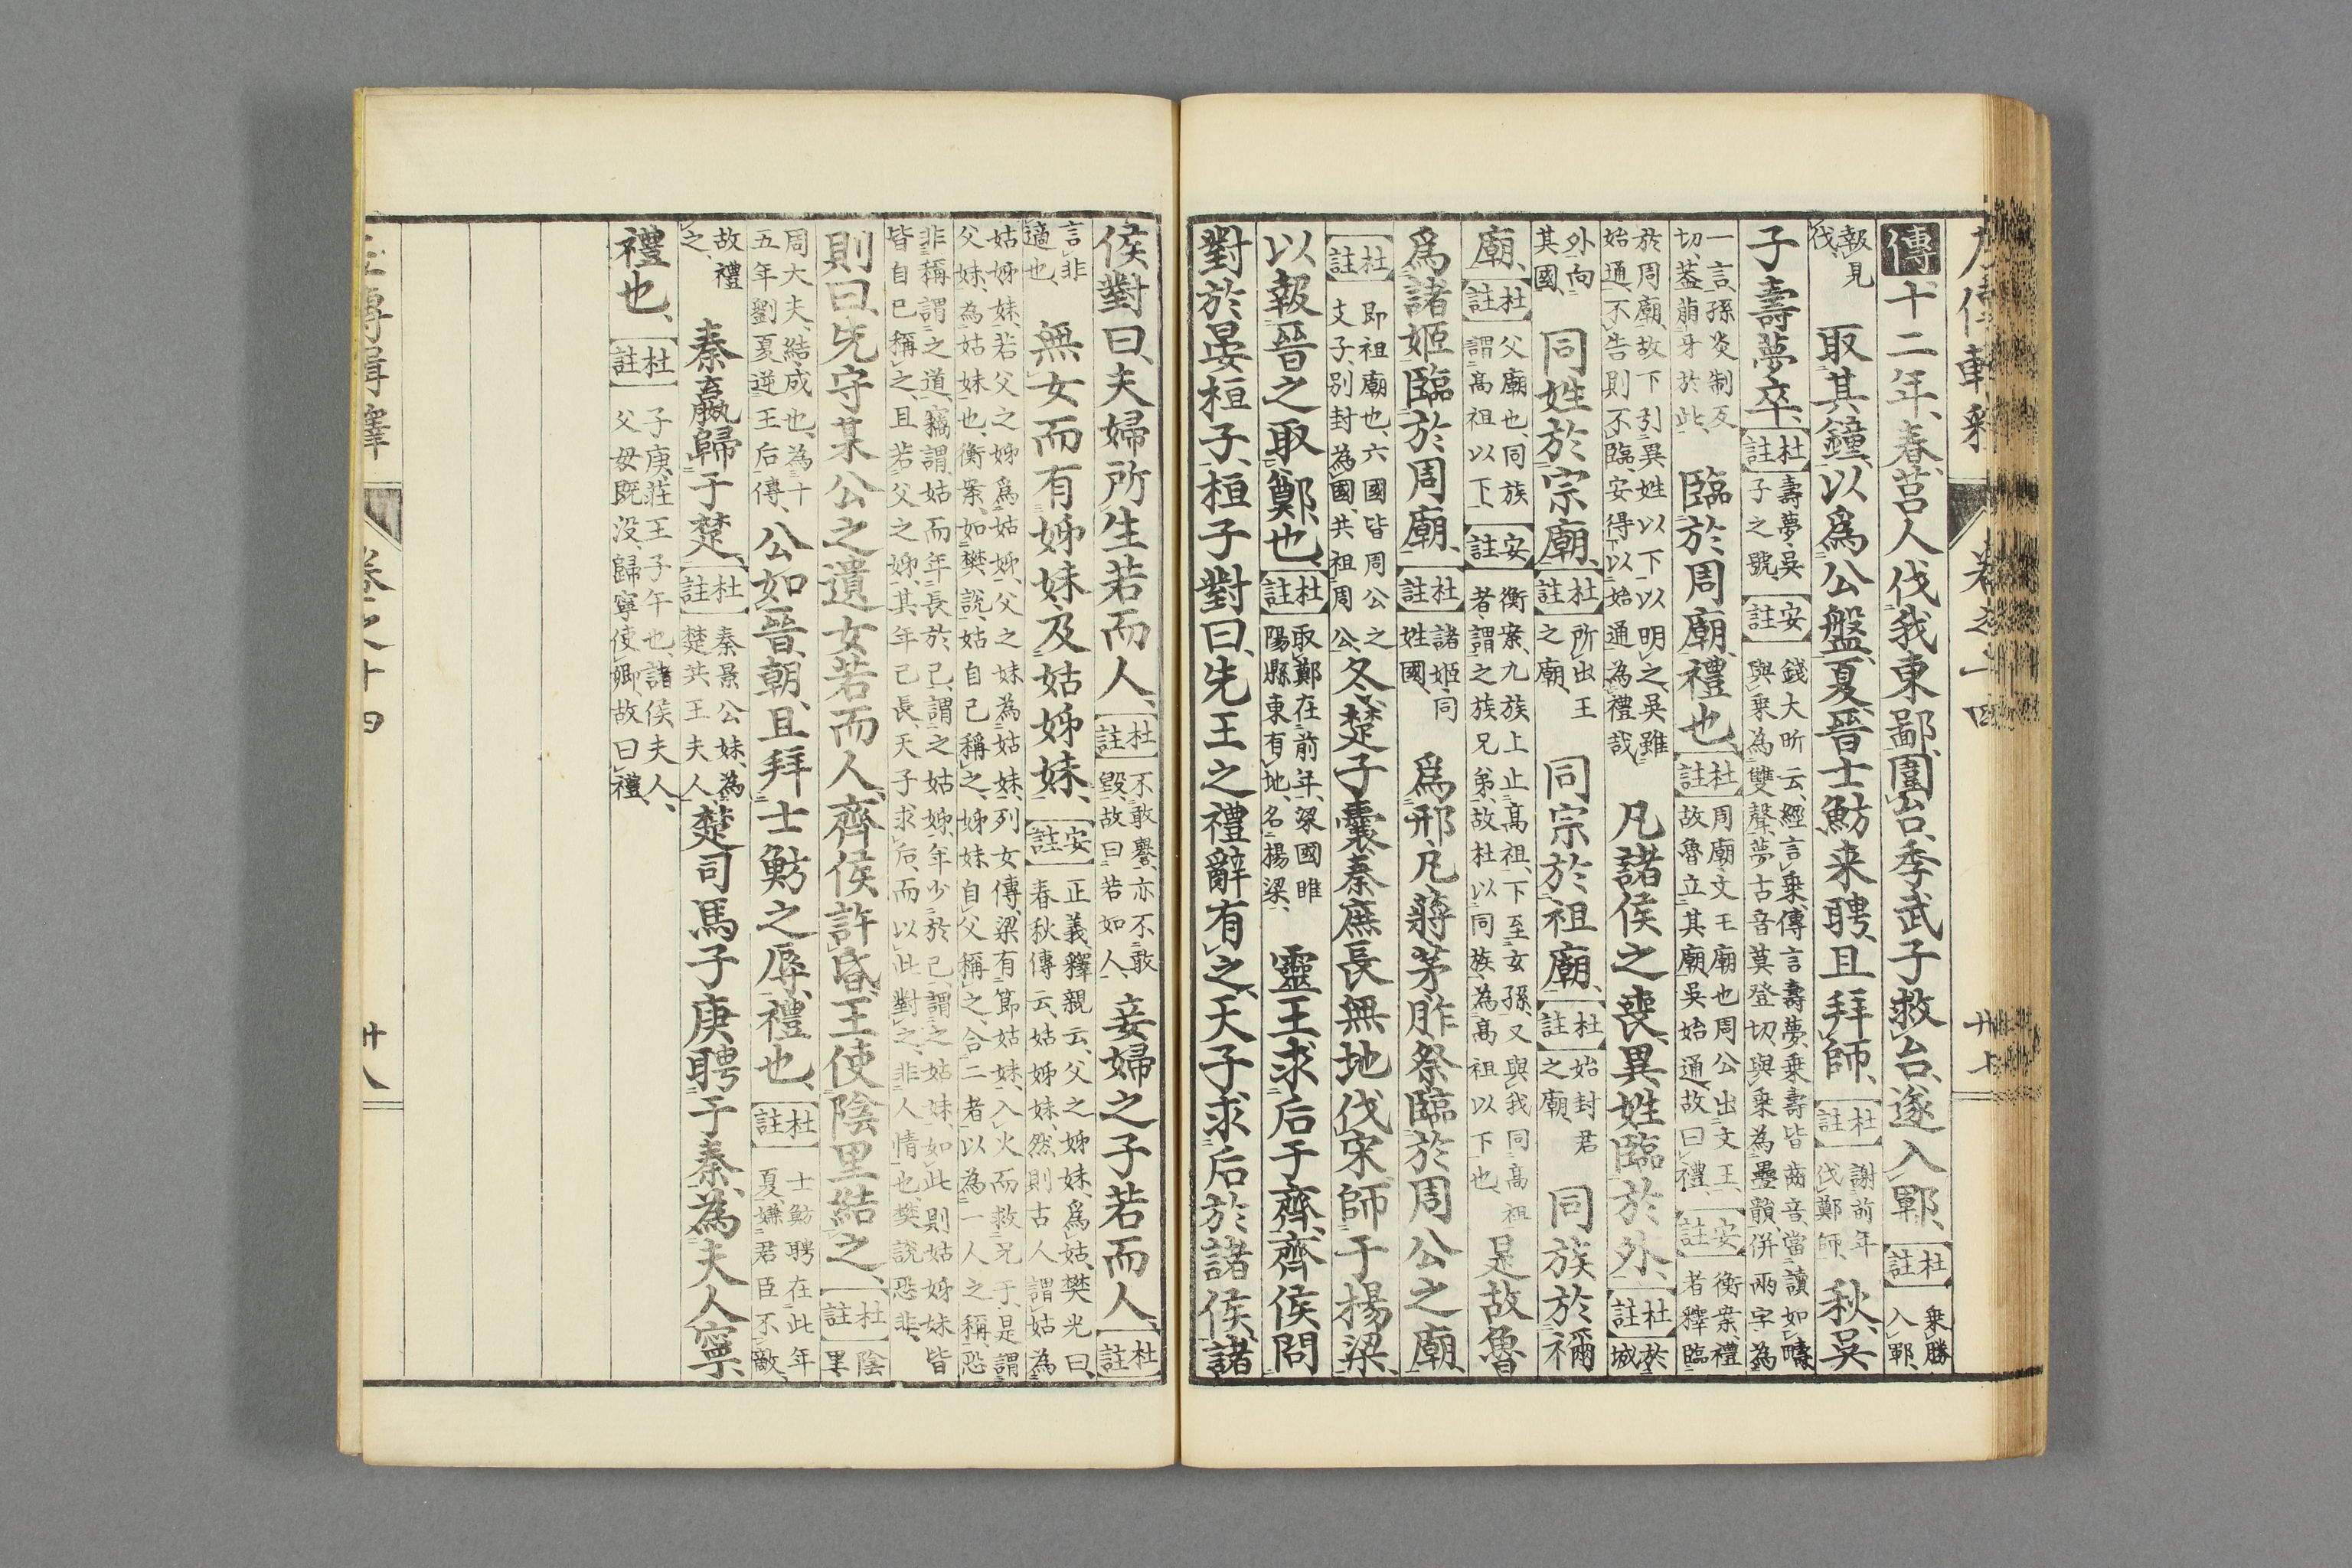 左傳輯釋 卷之十四 廿七
傳十二年、春、莒人伐我東鄙、圍台、季武子救台、遂入鄆、杜註乘勝入鄆、
報見伐、取其鐘、以爲公盤、夏、晉士魴来聘、且拜師、杜註謝前年伐鄭師、秋、吳
子壽夢卒、杜註壽夢、吳子之號、安註錢大昕云、經言乗、傳言壽夢、乗壽皆齒音、當讀如疇、與乗為雙聲、夢古音莫登切、與乗為疊韻、併兩字為
一言、孫炎制反切、葢萠牙於此、臨於周廟、禮也、杜註周廟、文王廟也、周公出文王、故魯立其廟、吳始通、故曰禮、安註衡案、禮者釋臨
於周廟、故下引異姓以下以明之、吳雖始通、不告則不臨、安得下以始通為禮哉、凡諸侯之喪、異姓臨於外、杜註於城
外向其國、同姓於宗廟、杜註所出王之廟、同宗於祖廟、杜註始封君之廟、同族於禰
廟、杜註父廟也、同族謂高祖以下、安註衡案、九族上止高祖、下至玄孫、又與我同高祖者、謂之族兄弟、故杜以同族為高祖以下也、是故魯
爲諸姬臨於周廟、杜註諸姬、同姓國、爲邢凡蔣茅胙祭臨於周公之廟、
杜註即祖廟也、六國皆周公之支子、別封為國、共祖周公、冬、楚子囊秦庶長無地伐宋、師于揚梁、
以報晉之取鄭也、杜註取鄭在前年、梁國睢陽縣東有地、名揚梁、靈王求后于齊、齊侯問
對於晏桓子、桓子對曰、先王之禮辭有之、天子求后於諸侯、諸
侯對曰、夫婦所生若而人、杜註不敢譽、亦不敢毀、故曰若如人、妾婦之子若而人、杜註
言非適也、無女而有姊妹及姑姊妹、安註正義、釋親云、父之姊妹、爲姑、樊光曰、春秋傳云、姑姊妹、然則古人謂姑為
姑姊妹、若父之姊爲姑姊、父之妹為姑妹、列女傳、梁有節姑妹、入火而救兄子、是謂父妹、為姑妹也、衡案、如樊說、姑自己稱之、姊妹自父稱之、合二者以為一人之稱、恐
非稱謂之道、竊謂、姑而年長於己、謂之姑姊、年少於己、謂之姑妹、如此則姑姊妹皆皆自己稱之、且若父之姊、其年已長、天子求后、而以此對之、非人情也、樊說恐非、
則曰、先守某公之遺女若而人、齊侯許昏、王使陰里結之、杜註陰里、
周大夫、結、成也、為十五年劉夏逆王后傳、公如晉、朝、且拜士魴之辱、禮也、杜註士魴聘在此年夏、嫌君臣不敵、
故禮之、秦嬴歸于楚、杜註秦景公妹、為楚共王夫人、楚司馬子庚聘于秦、為夫人寧、
禮也、杜註子庚、莊王子午也、諸侯夫人、父母既没、歸寧使卿、故曰禮、
左傳輯釋 卷之十四 廿八